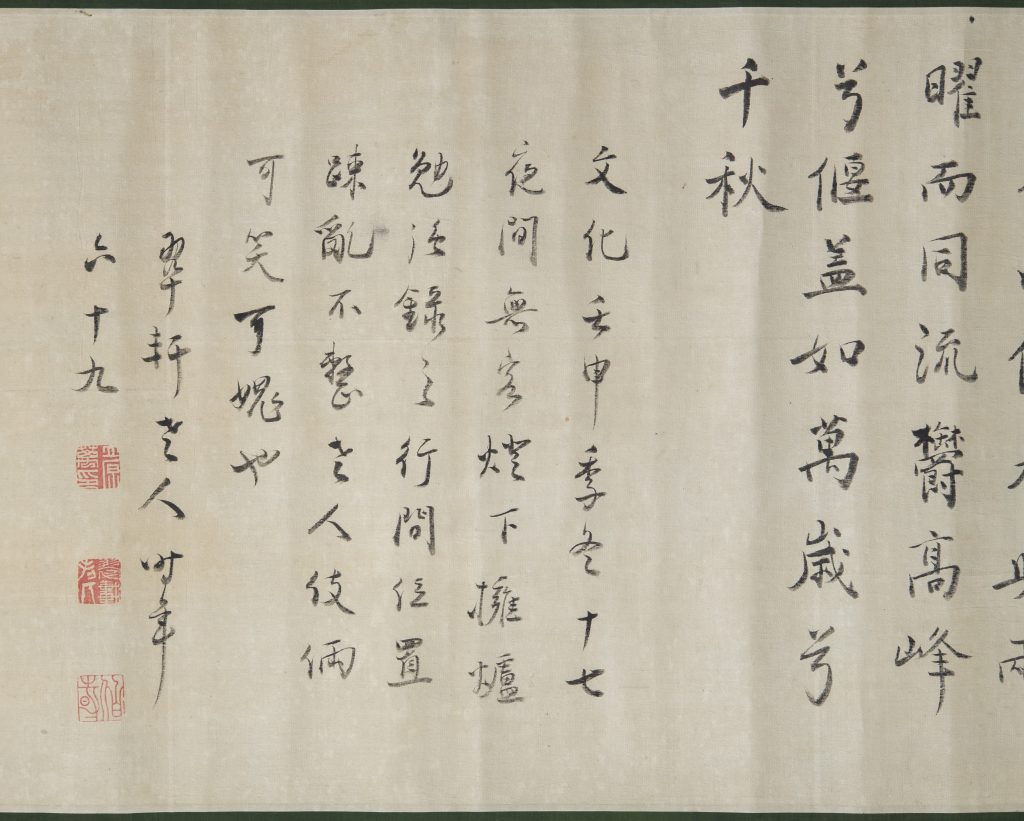 曜而同流欝高峰
兮偃盖如萬歳兮
千秋
文化壬申季冬十七
夜間無客燈下擁爐
勉強録之行間位置
踈亂不整老人伎倆
可笑可媿也
翠軒老人時年
六十九
立原萬印
伯時